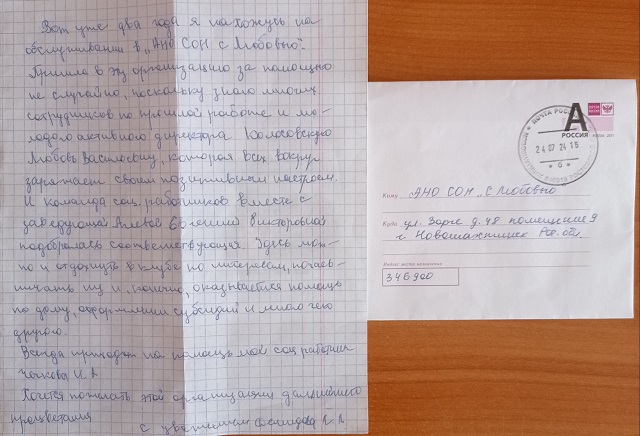 Вот уже два года я нахожусь на
обслуживании в „АНО СОН с Любовью".
Пришла в эту организацию за помощью
не случайно, поскольку знаю многих
сотрудников по прошлой работе и мо-
лодого активного директора Колосовскую
Любовь Васильевну, которая всех вокруг
заряжает своим позитивным настроем.
И команда соц. работников вместе с
заведующей Евгенией Викторовной
подобралась соответствующая. Здесь мож-
но и отдохнуть в клубе по интересам, почаев-
ничать ну и, конечно, оказывается помощь
по дому, оформлении субсидий и много чего
другого.
Всегда приходит на помощь мой соц. работник
Чечкова И. В.
Хочется пожелать этой организации дальнейшего
процветания
с уважением
ПОЧТА РОССИИ
24 07 24 15
А
РОССИЯ
Кому АНО СОН „С Любовью"
Куда ул. Зорге д. 48 помещение 9
г. Новошахтинск Рос. обл.
Индекс места назначения
346900